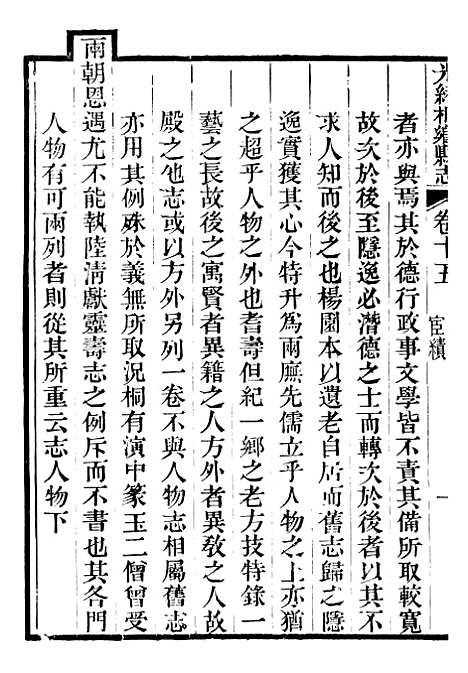 光緒桐鄉縣志
卷十五
宦績
一
者亦與焉其於德行政事文學皆不責其備所取較寬
故次於後至隱逸必潛德之士而轉次於後者以其不
求人知而後之也楊園本以遺老自居而舊志歸之隱
逸實獲其心今特升爲兩廡先儒立乎人物之上亦猶
之超乎人物之外也耆壽但紀一鄉之老方技特錄一
藝之長故後之寓賢者異籍之人方外者異敎之人故
殿之他志或以方外另列一卷不與人物志相屬舊志
亦用其例殊於義無所取況桐有演中篆玉二僧曾受
兩朝恩遇尤不能執陸淸獻靈壽志之例斥而不書也其各門
人物有可兩列者則從其所重云志人物下